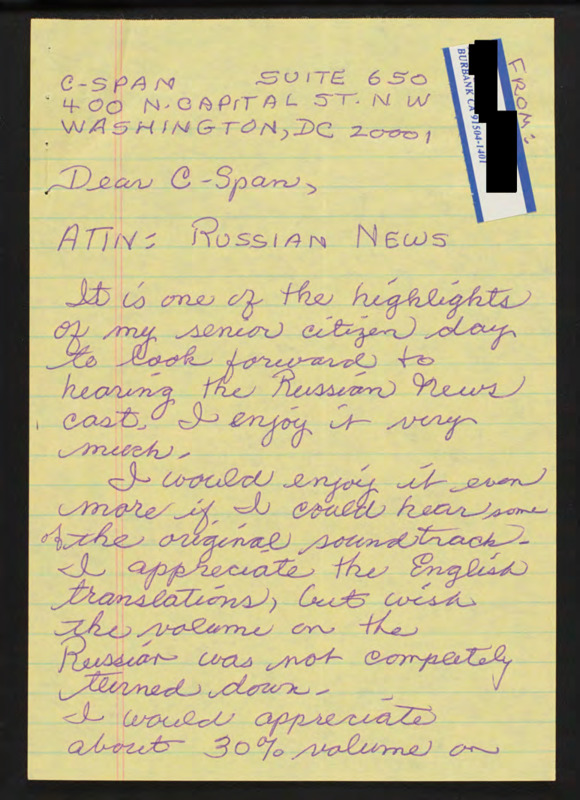 C-SPAN SUITE 650
400 N. CAPITAL ST. N W
WASHINGTON, DC 20001
FROM:
BURBANK CA 91504-1401
Dear C-Span,
ATTN: RUSSIAN NEWS
It is one of the highlights
of my senior citizen day
to look forward to
hearing the Russian News
cast. I enjoy it very
much.
I would enjoy it even
more if I could hear some
of the original soundtrack.
I appreciate the English
translations, but wish
the volume on the
Russian was not completely
turned down.
I would appreciate
about 30% volume on